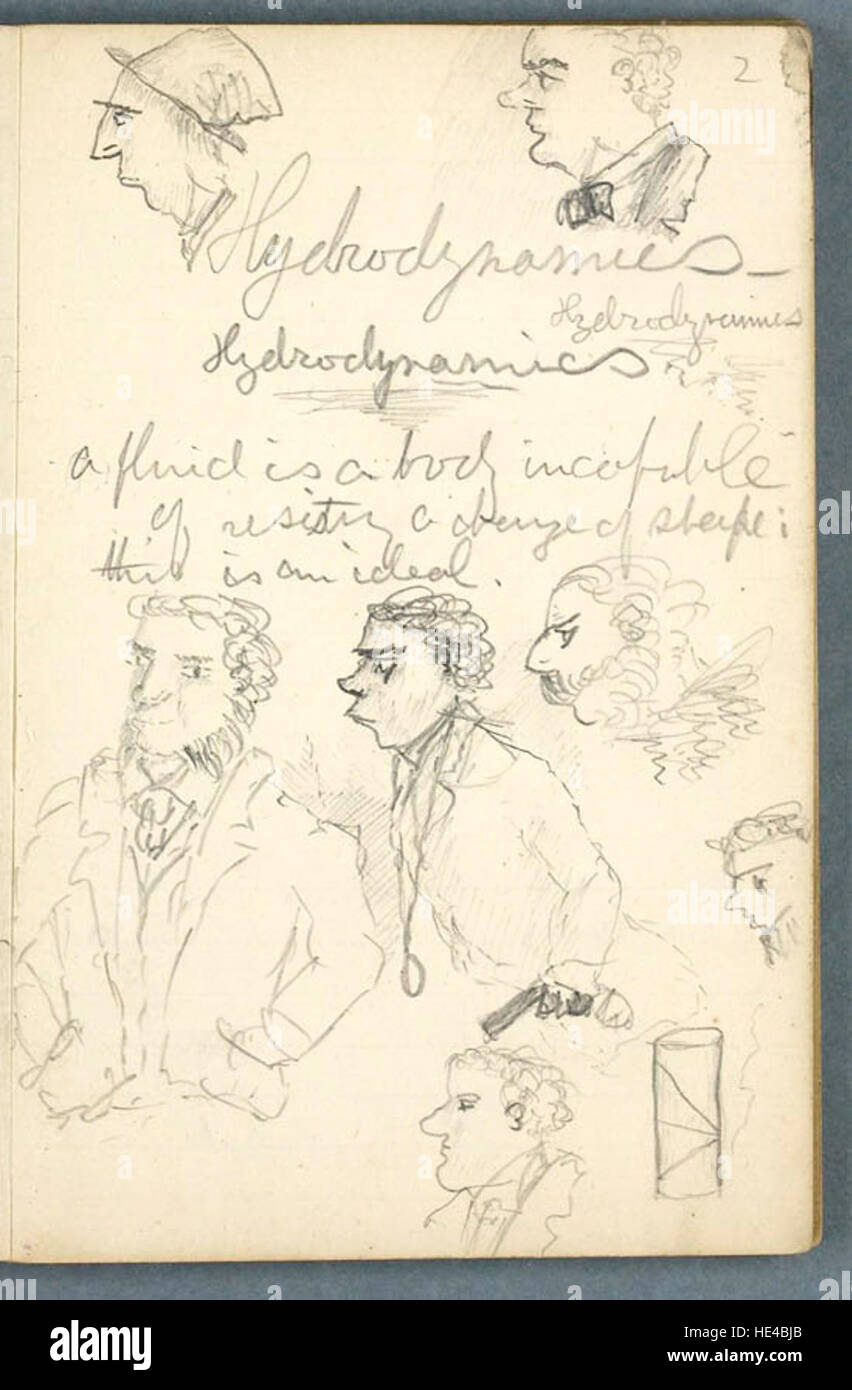 2
Hydrodynamics
Hydrodynamics
Hydrodynamics
a fluid is a body incapable
of resisting a change of shape:
this is an ideal.
alamy
Image ID: HE4BJB
www.alamy.com